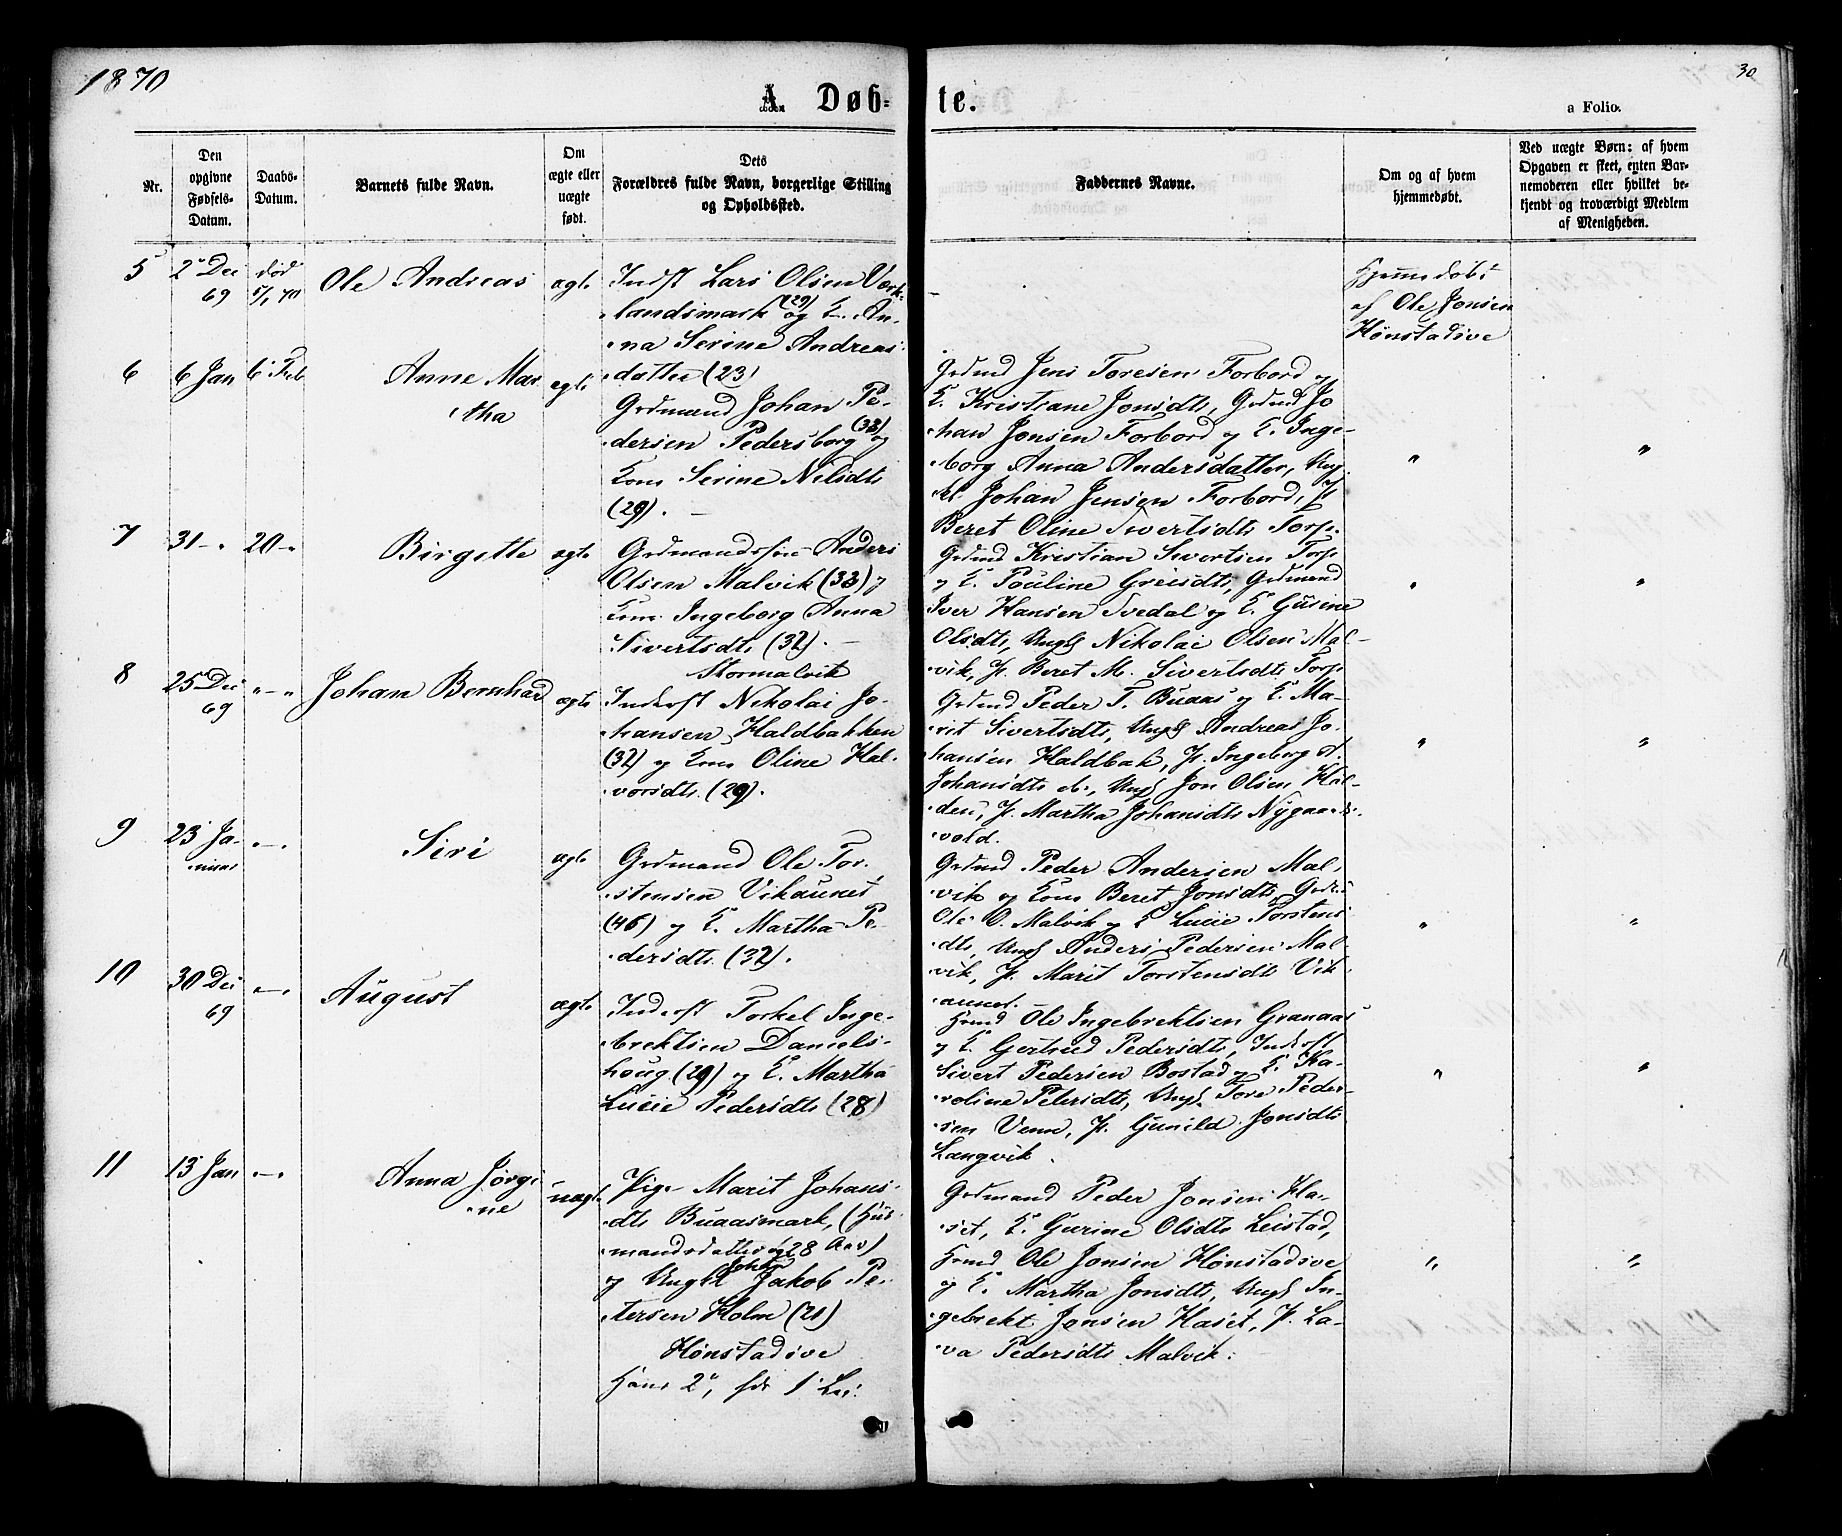 1870
30
A. Døb=
te.
a Folio.
Nr.
Den
opgivne
Fødsels-
Datum.
Daabs-
Datum.
Barnets fulde Navn.
Om
ægte eller
uægte
født.
Dets
Forældres fulde Navn, borgerlige Stilling
og Opholdssted.
Faddernes Navne.
Om og af hvem
hjemmedøbt.
Ved uægte Børn: af hvem
Opgaven er skeet, enten Bar-
nemoderen eller hvilket be-
kjendt og troværdigt Medlem
af Menigheden.
5
2 Dec
69
død
5/1 70
Ole Andreas
ægte
Indst Lars Olsen Værk-
landsmark (29) og E. An-
na Serine Andreas-
datter (23)
-
Hjemmedøbt
af Ole Jonsen
Hønstadøve
6
6 Jan
6 Feb
Anne Mar-
tha
ægte
Grdmand Johan Pe-
dersen Pedersborg (33) og
Kone Serine Nilsdtr
(29). -
Grdmd Jens Toresen Forbord og
E. Kristiane Jonsdtr, Grdmd Jo
han Jonsen Forbord og E. Inge-
borg Anna Andersdatter, Ung
kl Johan Jensen Forbord, P.
Beret Oline Sivertsdtr Torp.
"
"
7
31 - "
20 - "
Birgitte
ægte
Grdmandssøn Anders
Olsen Malvik (33) og
Kone Ingeborg Anna
Sivertsdtr (32). -
Stormalvik
Grdmd Kristian Sivertsen Torp
og E. Pauline Greisdtr, Grdmand
Iver Hansen Svedal og E. Gusine
Olsdtr, Ungk Nikolai Olsen Mal-
vik, P. Beret M. Sivertsdtr Torp
"
"
8
25 Dec
69
" - "
Johan Bernhard
ægte
Inderst Nikolai Jo-
hansen Haldbakken
(32) og Kone Oline Hal-
vorsdtr. (29).
Grdmd Peder T. Buaas og E. Ma-
rit Sivertsdtr, Ungk Andreas Jo-
hansen Haldbak, P. Ingeborg A.
Johansdtr eb., Ungk Jon Olsen Hal-
den, P. Martha Johansdtr Nygaards-
vold.
"
"
9
23 Ja-
nuar
" - "
Siri
ægte
Grdmand Ole Tor-
stensen Vikaunet
(46) og E. Martha Pe-
dersdtr. (32).
Grdmd Peder Andersen Mal-
vik og Kone Beret Jonsdtr, Grdmd
Ole O. Malvik og E Lucie Torstens
dtr, Ungk Anders Pedersen Mal-
vik, P. Marit Torstensdtr Vik-
aunet.
"
"
10
30 Dec
69
" - "
August
ægte
Inderst Torkel Inge-
brektsen Daniels-
houg (29) og E. Martha
Lucie Pedersdtr (28)
Hmd Ole Ingebrektsen Granaas
og E. Gertrud Pedersdtr, Inderst
Sivert Pedersen Bostad og E. Ka-
roline Petersdtr, Ungk. Tore Peder-
sen Venn, P. Gunild Jonsdtr
Langvik.
"
"
11
13 Jan
" - "
Anna Jørgi-
ne
uægte
Pige Marit Johans-
dtr Buaasmark, (Hus-
mandsdatter 28 Aar)
og Ungkl Johan Jakob Pe-
tersen Holm (21)
Hønstadøve
Hans 2", 1
Grdmand Peder Jonsen Ha-
set, E. Gurine Olsdtr Leistad,
Hmd Ole Jonsen Hønstadøve
og E. Martha Jonsdtr, Ungk In-
gebrekt Jonsen Haset, P. La-
va Pedersdtr Malvik.
"
"